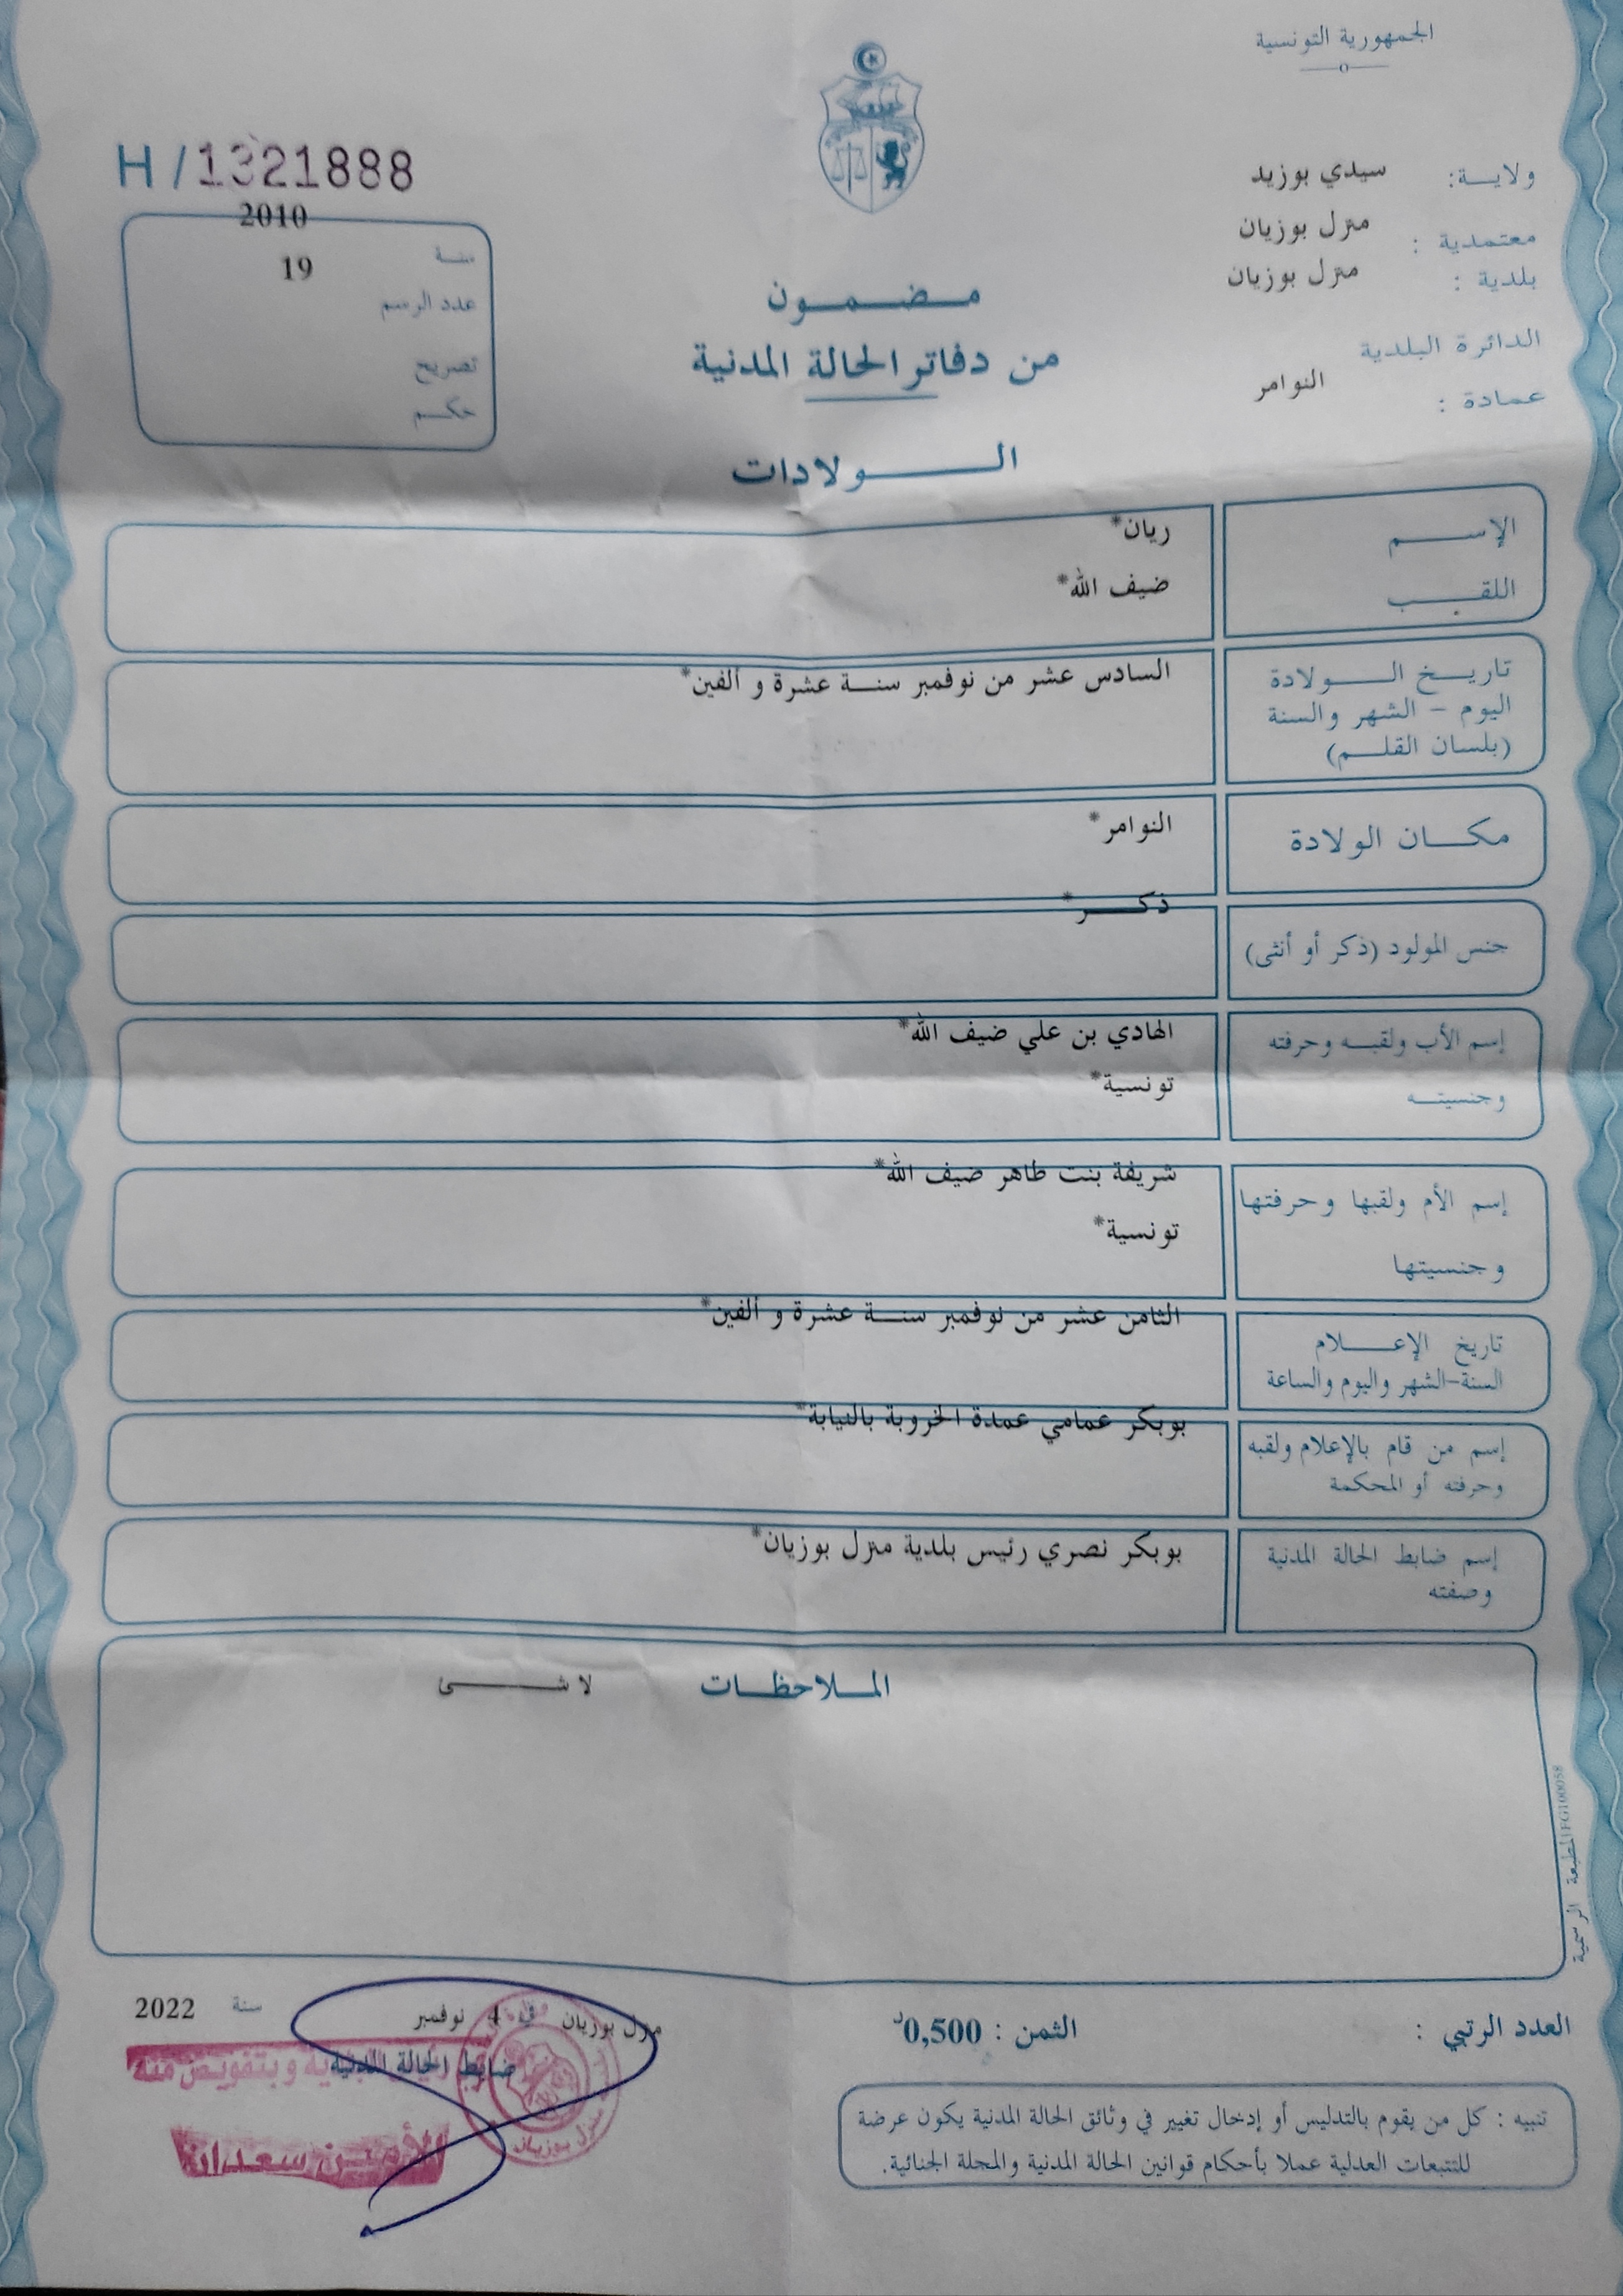 الجمهورية التونسية
H/1321888
ولايـة: سيدي بوزيد
معتمدية : منزل بوزيان
بلدية : منزل بوزيان
الدائرة البلدية
عمادة : النوامر
2010
سنة
19
عدد الرسم
تصريح
حكم
مضمون
من دفاتر الحالة المدنية
الولادات
الإسم ريان*
اللقب ضيف الله*
تاريخ الولادة السادس عشر من نوفمبر سنة عشرة و ألفين*
اليوم - الشهر والسنة
(بلسان القلم)
مكان الولادة النوامر*
ذكر*
جنس المولود (ذكر أو أنثى)
إسم الأب ولقبه وحرفته الهادي بن علي ضيف الله*
وجنسيته تونسية*
شريفة بنت طاهر ضيف الله*
إسم الأم ولقبها وحرفتها
تونسية*
وجنسيتها
الثامن عشر من نوفمبر سنة عشرة و ألفين*
تاريخ الإعلام
السنة-الشهر واليوم والساعة
بوبكر عمامي عمدة الخروبة بالنيابة*
إسم من قام بالإعلام ولقبه
وحرفته أو المحكمة
إسم ضابط الحالة المدنية بوبكر نصري رئيس بلدية منزل بوزيان*
وصفته
الملاحظات لا شئ
المطبعة الرسمية FG100058
العدد الرتبي :
الثمن : 0,500د
منزل بوزيان في 4 نوفمبر سنة 2022
ضابط الحالة المدنية
وبتفويض منه
الأمين سعدان
منزل بوزيان
تنبيه : كل من يقوم بالتدليس أو إدخال تغيير في وثائق الحالة المدنية يكون عرضة
للتتبعات العدلية عملا بأحكام قوانين الحالة المدنية والمجلة الجنائية.